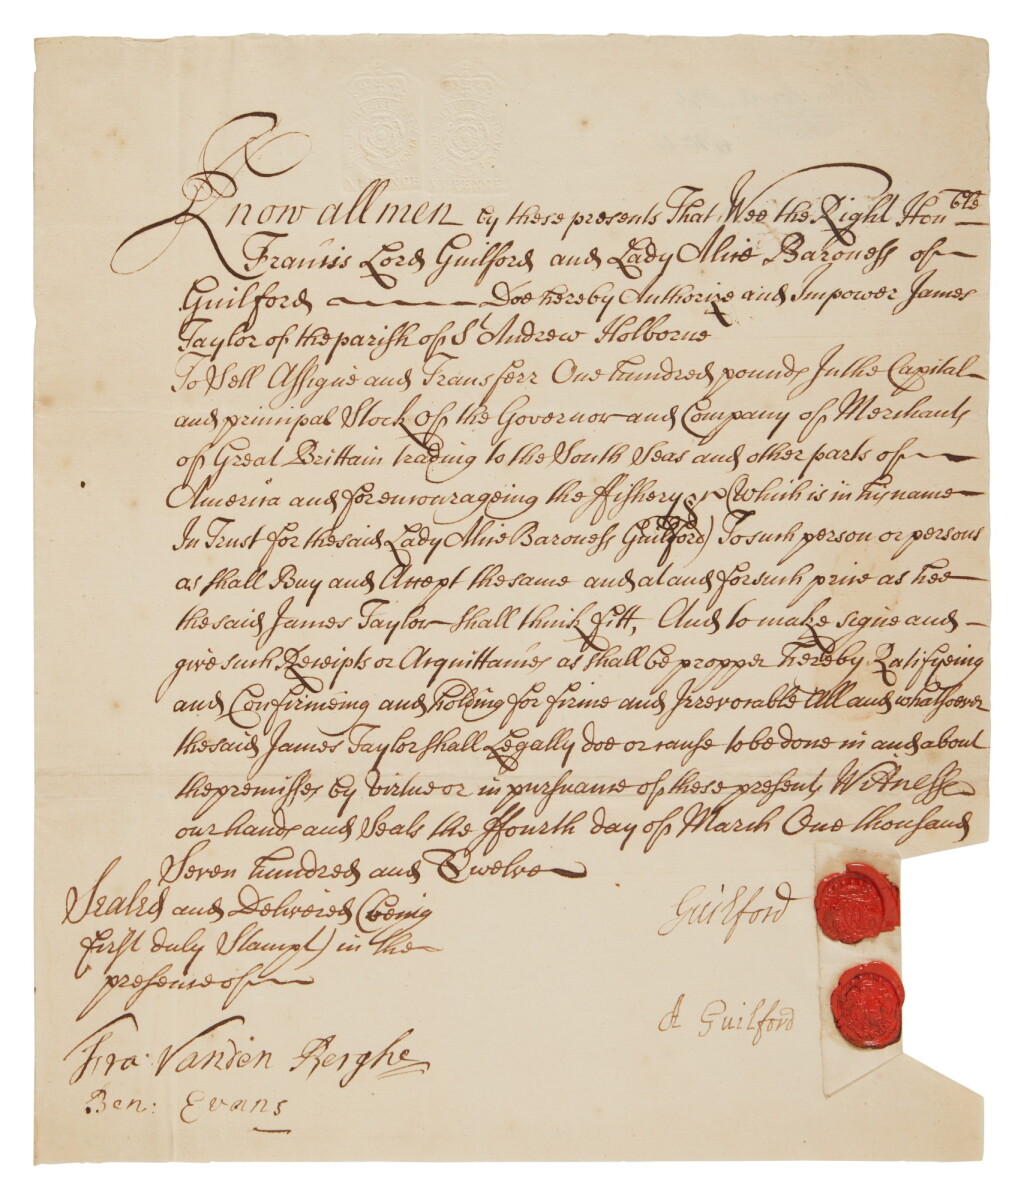 Know all men by these presents That Wee the Right Hon^ble
Francis Lord Guilford and Lady Alice Baroness of
Guilford Doe hereby Authorize and Impower James
Taylor of the parish of S^t Andrew Holborne
To Sell Assigne and Transferr One hundred pounds In the Capital
and principal Stock Of the Governor and Company of Merchants
of Great Brittain trading to the South Seas and other parts of
America and for encourageing the ffishery (Which is in my name
In Trust for the said Lady Alice Baroness Guilford) To such person or persons
as shall Buy and Accept the same and at and for such price as hee
the said James Taylor shall think fitt, And to make signe and
give such Receipts or Acquittances as shall be propper hereby Ratifyeing
and Confirmeing and holding for firme and Irrevocable All and whatsoever
the said James Taylor shall Legally doe or cause to be done in and about
the premisses by virtue or in pursuance of these presents Witnesse
our hands and Seals the ffourth day of March One thousand
Seven hundred and Twelve
Sealed and Delivered (being
first duly Stampt) in the
presence of
Guilford
A Guilford
Fra: Vanden Berghe
Ben: Evans